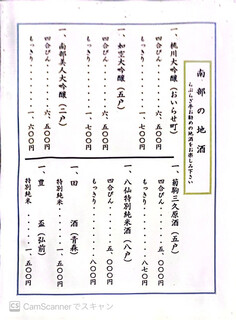 南部の地酒
らぷらざ亭お勧めの地酒をお楽しみ下さい
一、桃川大吟醸（おいらせ町）
四合びん・・・・六、五〇〇円
もっきり・・・・一、七〇〇円
一、如空大吟醸（五戸）
四合びん・・・・六、五〇〇円
もっきり・・・・一、七〇〇円
一、南部美人大吟醸（二戸）
四合びん・・・・六、五〇〇円
もっきり・・・・一、六〇〇円
一、菊駒三久原酒（五戸）
四合びん・・・・五、〇〇〇円
もっきり・・・・八七〇円
一、八仙特別純米酒（八戸）
四合びん・・・・五、〇〇〇円
もっきり・・・・八〇〇円
一、田　酒（青森）
特別純米・・・・一、五〇〇円
一、豊　盃（弘前）
特別純米・・・・一、五〇〇円
CS CamScannerでスキャン